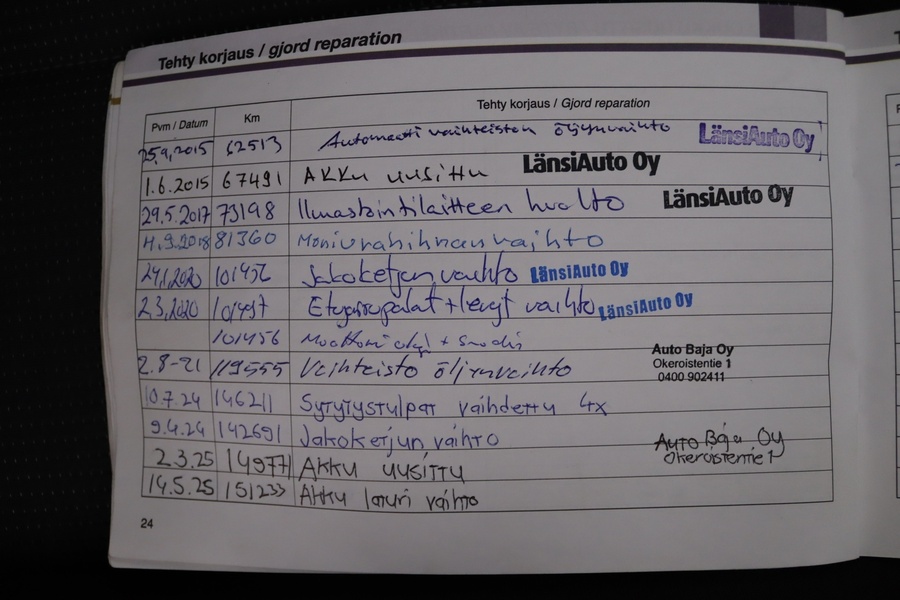 Tehty korjaus / gjord reparation
Pvm / Datum Km Tehty korjaus / Gjord reparation
25.9.2015 62513 Automaatti vaihteiston öljynvaihto LänsiAuto Oy
1.6.2015 67491 AKKu uusittu LänsiAuto Oy
29.5.2017 73198 Ilmastointilaitteen huolto LänsiAuto Oy
.9.2018 81360 Moniurahihnan vaihto
24.1.2020 101456 Jakoketjun vaihto LänsiAuto Oy
2.3.2020 101497 Etujarrupalat + levyt vaihto LänsiAuto Oy
101456 Moottoriöljy +
2.8-21 119555 Vaihteisto öljynvaihto Auto Baja Oy
Okeroistentie 1
0400 902411
10.7.24 146211 Sytytystulpat vaihdettu 4x
9.4.24 142691 Jakoketjun vaihto Auto Baja Oy
Okeroistentie 1
2.3.25 149771 AKKU UUSITTU
14.5.25 151233 AKKU laturi vaihto
24